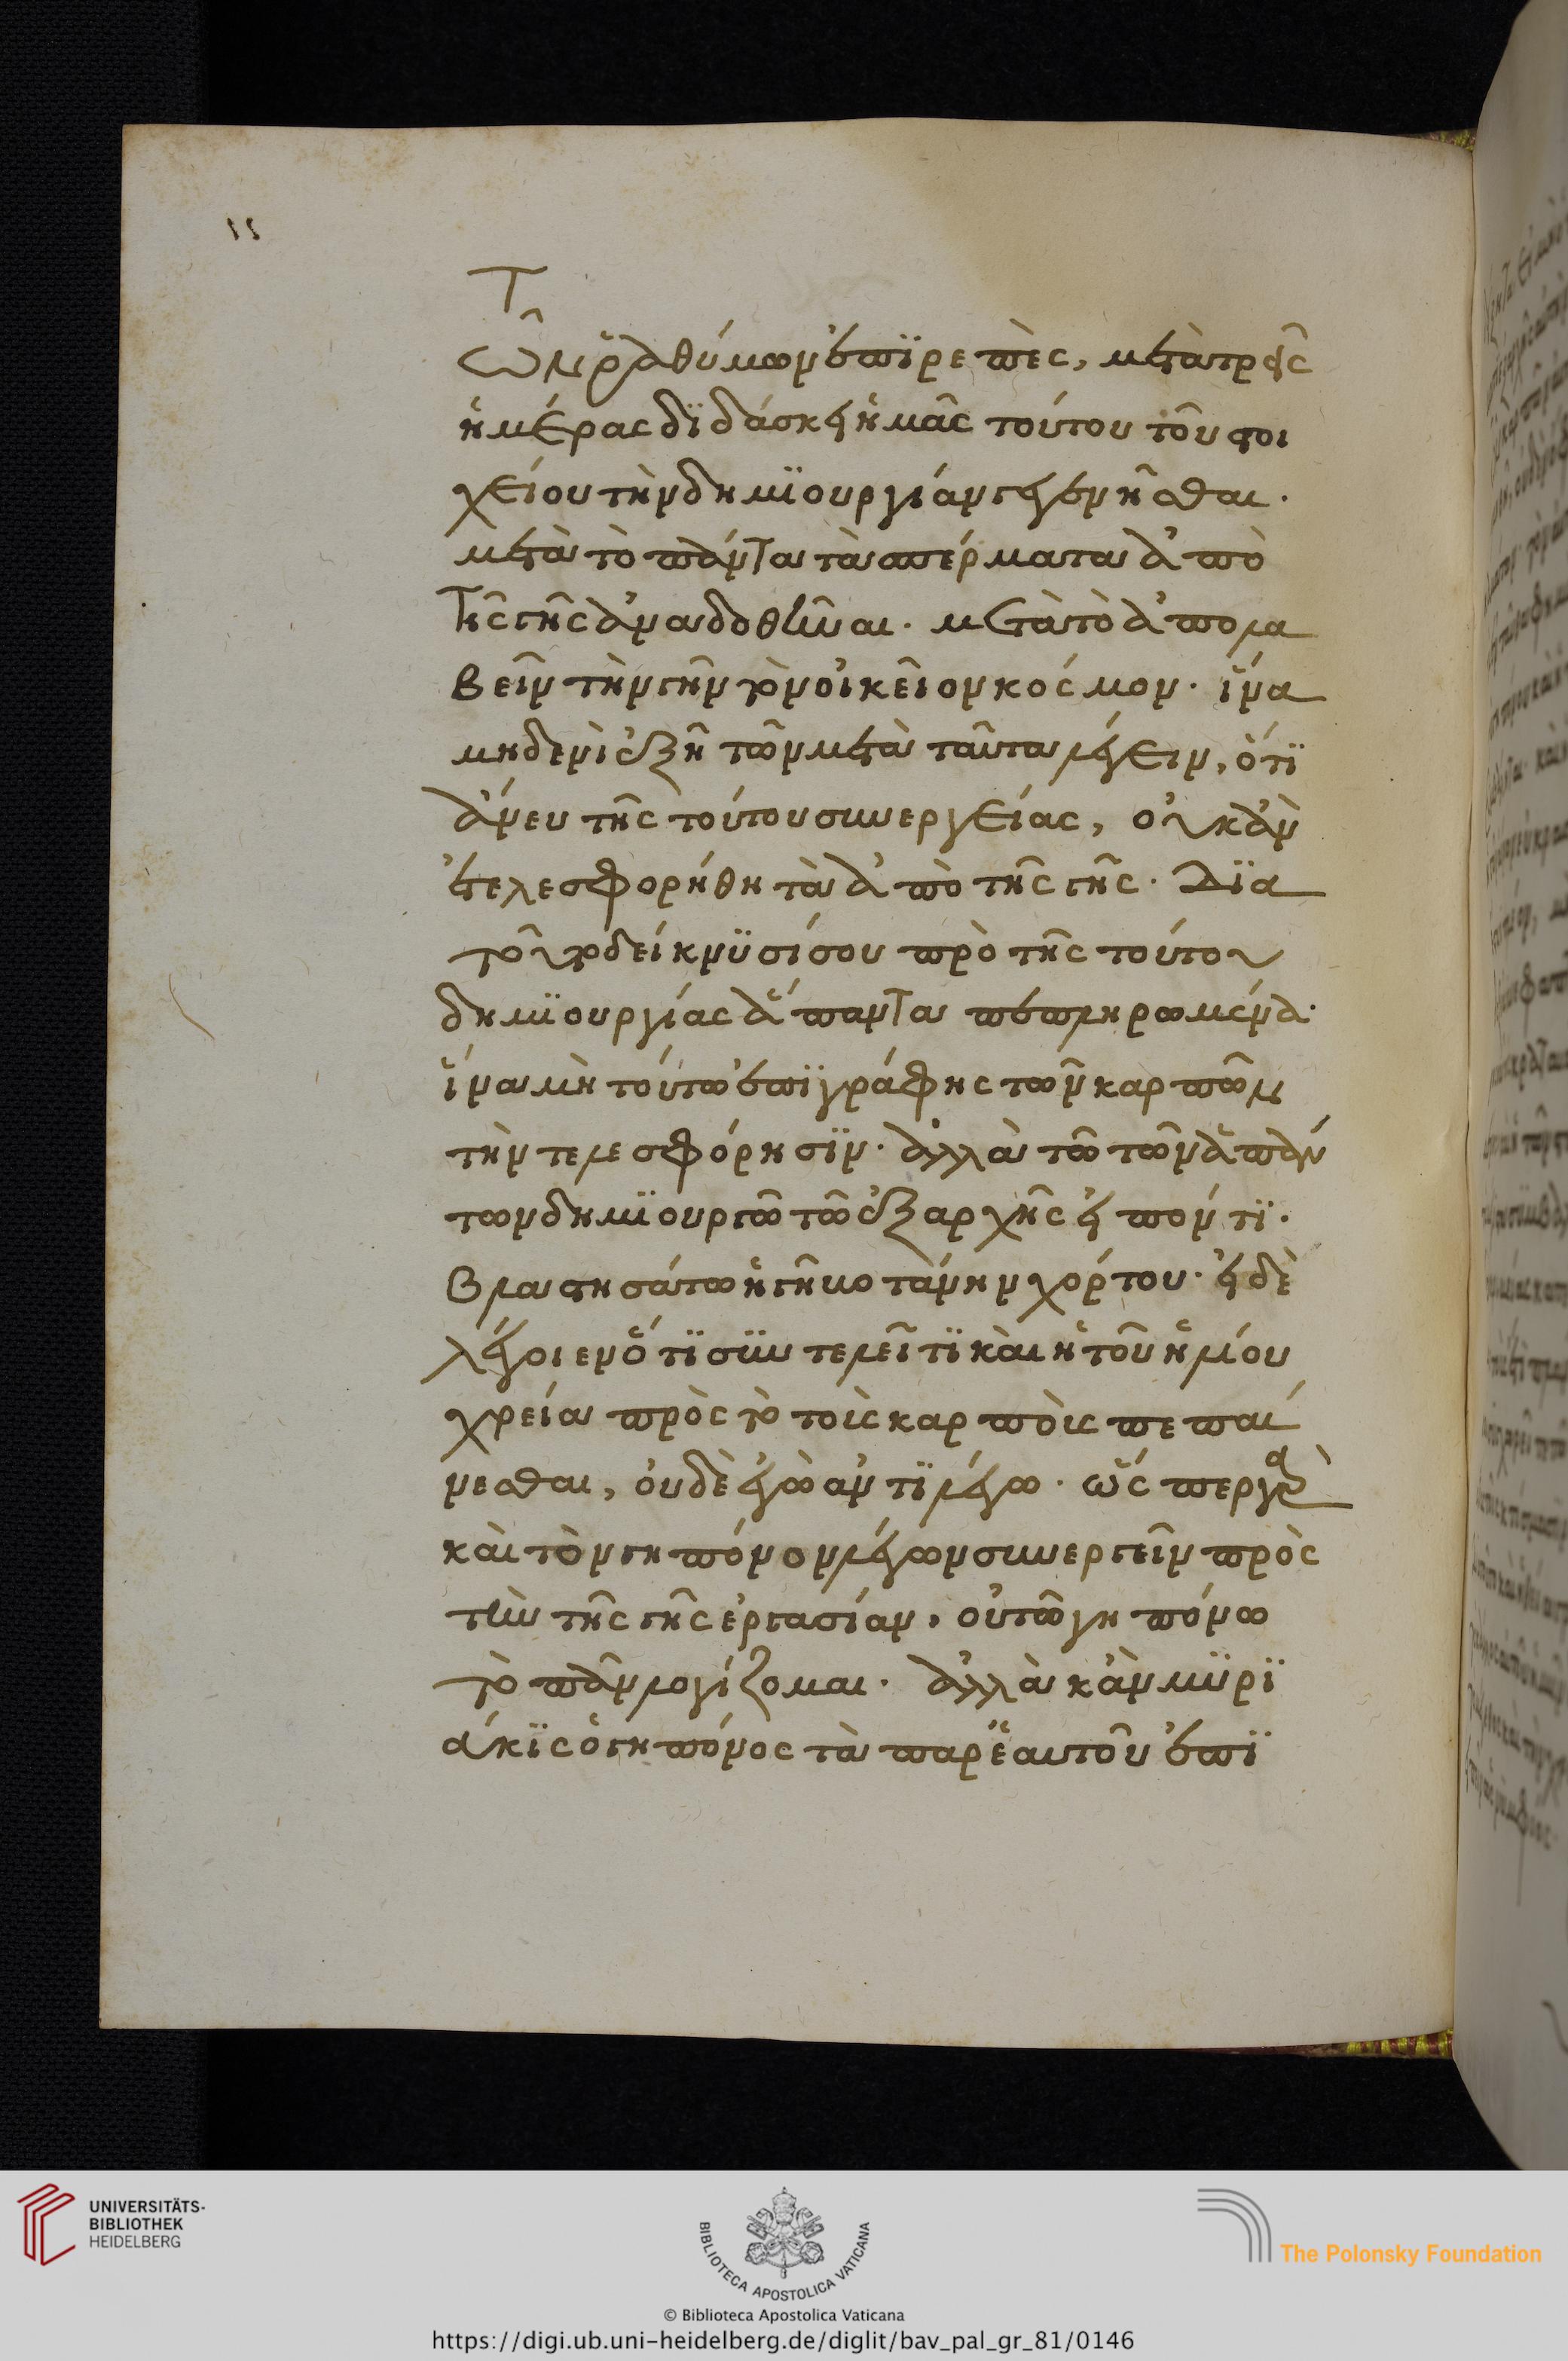 Τ
ῶν ῥαθύμων ἐπϊρεπὲς, μετὰ τρεῖς
ἡμέρας δϊδάσκει ἡμᾶς τούτου τοῦ στοι
χείου τὴν δημϊουργίαν γεγενῆσθαι.
μετὰ τὸ πάντα τὰ σπέρματα ἀπὸ
τῆς γῆς ἀναδοθῆναι. μετὰ τὸ ἀπολα
βεῖν τὴν γῆν τὸν οἰκεῖον κόσμον. ἵνα
μηδενὶ ἐξῆ τῶν μετὰ ταῦτα λέγειν, ὅτϊ
ἄνευ τῆς τούτου συνεργείας, οὐκ ἂν
ἐτελεσφορήθη τὰ ἀπὸ τῆς γῆς. Δϊα
τοῦτο δείκνϋσί σου πρὸ τῆς τούτου
δημϊουργίας ἅπαντα πεπληρωμένα.
ἵνα μὴ τούτω ἐπϊγράφης τῶν καρπῶν
τὴν τελεσφόρησϊν. ἀλλὰ τῶ τῶν ἁπάν
των δημϊουργῶ τῶ ἐξαρχῆς εἰπόντϊ.
βλαστησάτω ἡ γῆ βοτάνην χόρτου. εἰ δὲ
λέγοιεν ὅτϊ σϋντελεῖ τϊ καὶ ἡ τοῦ ἡλίου
χρεία πρὸς τὸ τοὺς καρποὺς πεπαί
νεσθαι, οὐδὲ ἐγὼ ἀντϊλέγω. ὥσπερ γὰρ
καὶ τὸν γηπόνον λέγων συνεργεῖν πρὸς
τὴν τῆς γῆς ἐργασίαν, οὐ τῶ γηπόνω
τὸ πᾶν λογίζομαι. ἀλλὰ κἂν μϋρϊ
άκϊς ὁ γηπόνος τὰ παρ ἑαυτοῦ ἐπϊ
UNIVERSITÄTS-
BIBLIOTHEK
HEIDELBERG
BIBLIOTECA APOSTOLICA VATICANA
The Polonsky Foundation
© Biblioteca Apostolica Vaticana
https://digi.ub.uni-heidelberg.de/diglit/bav_pal_gr_81/0146